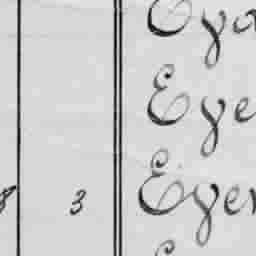 Eya
Eye
8 3 Eyer